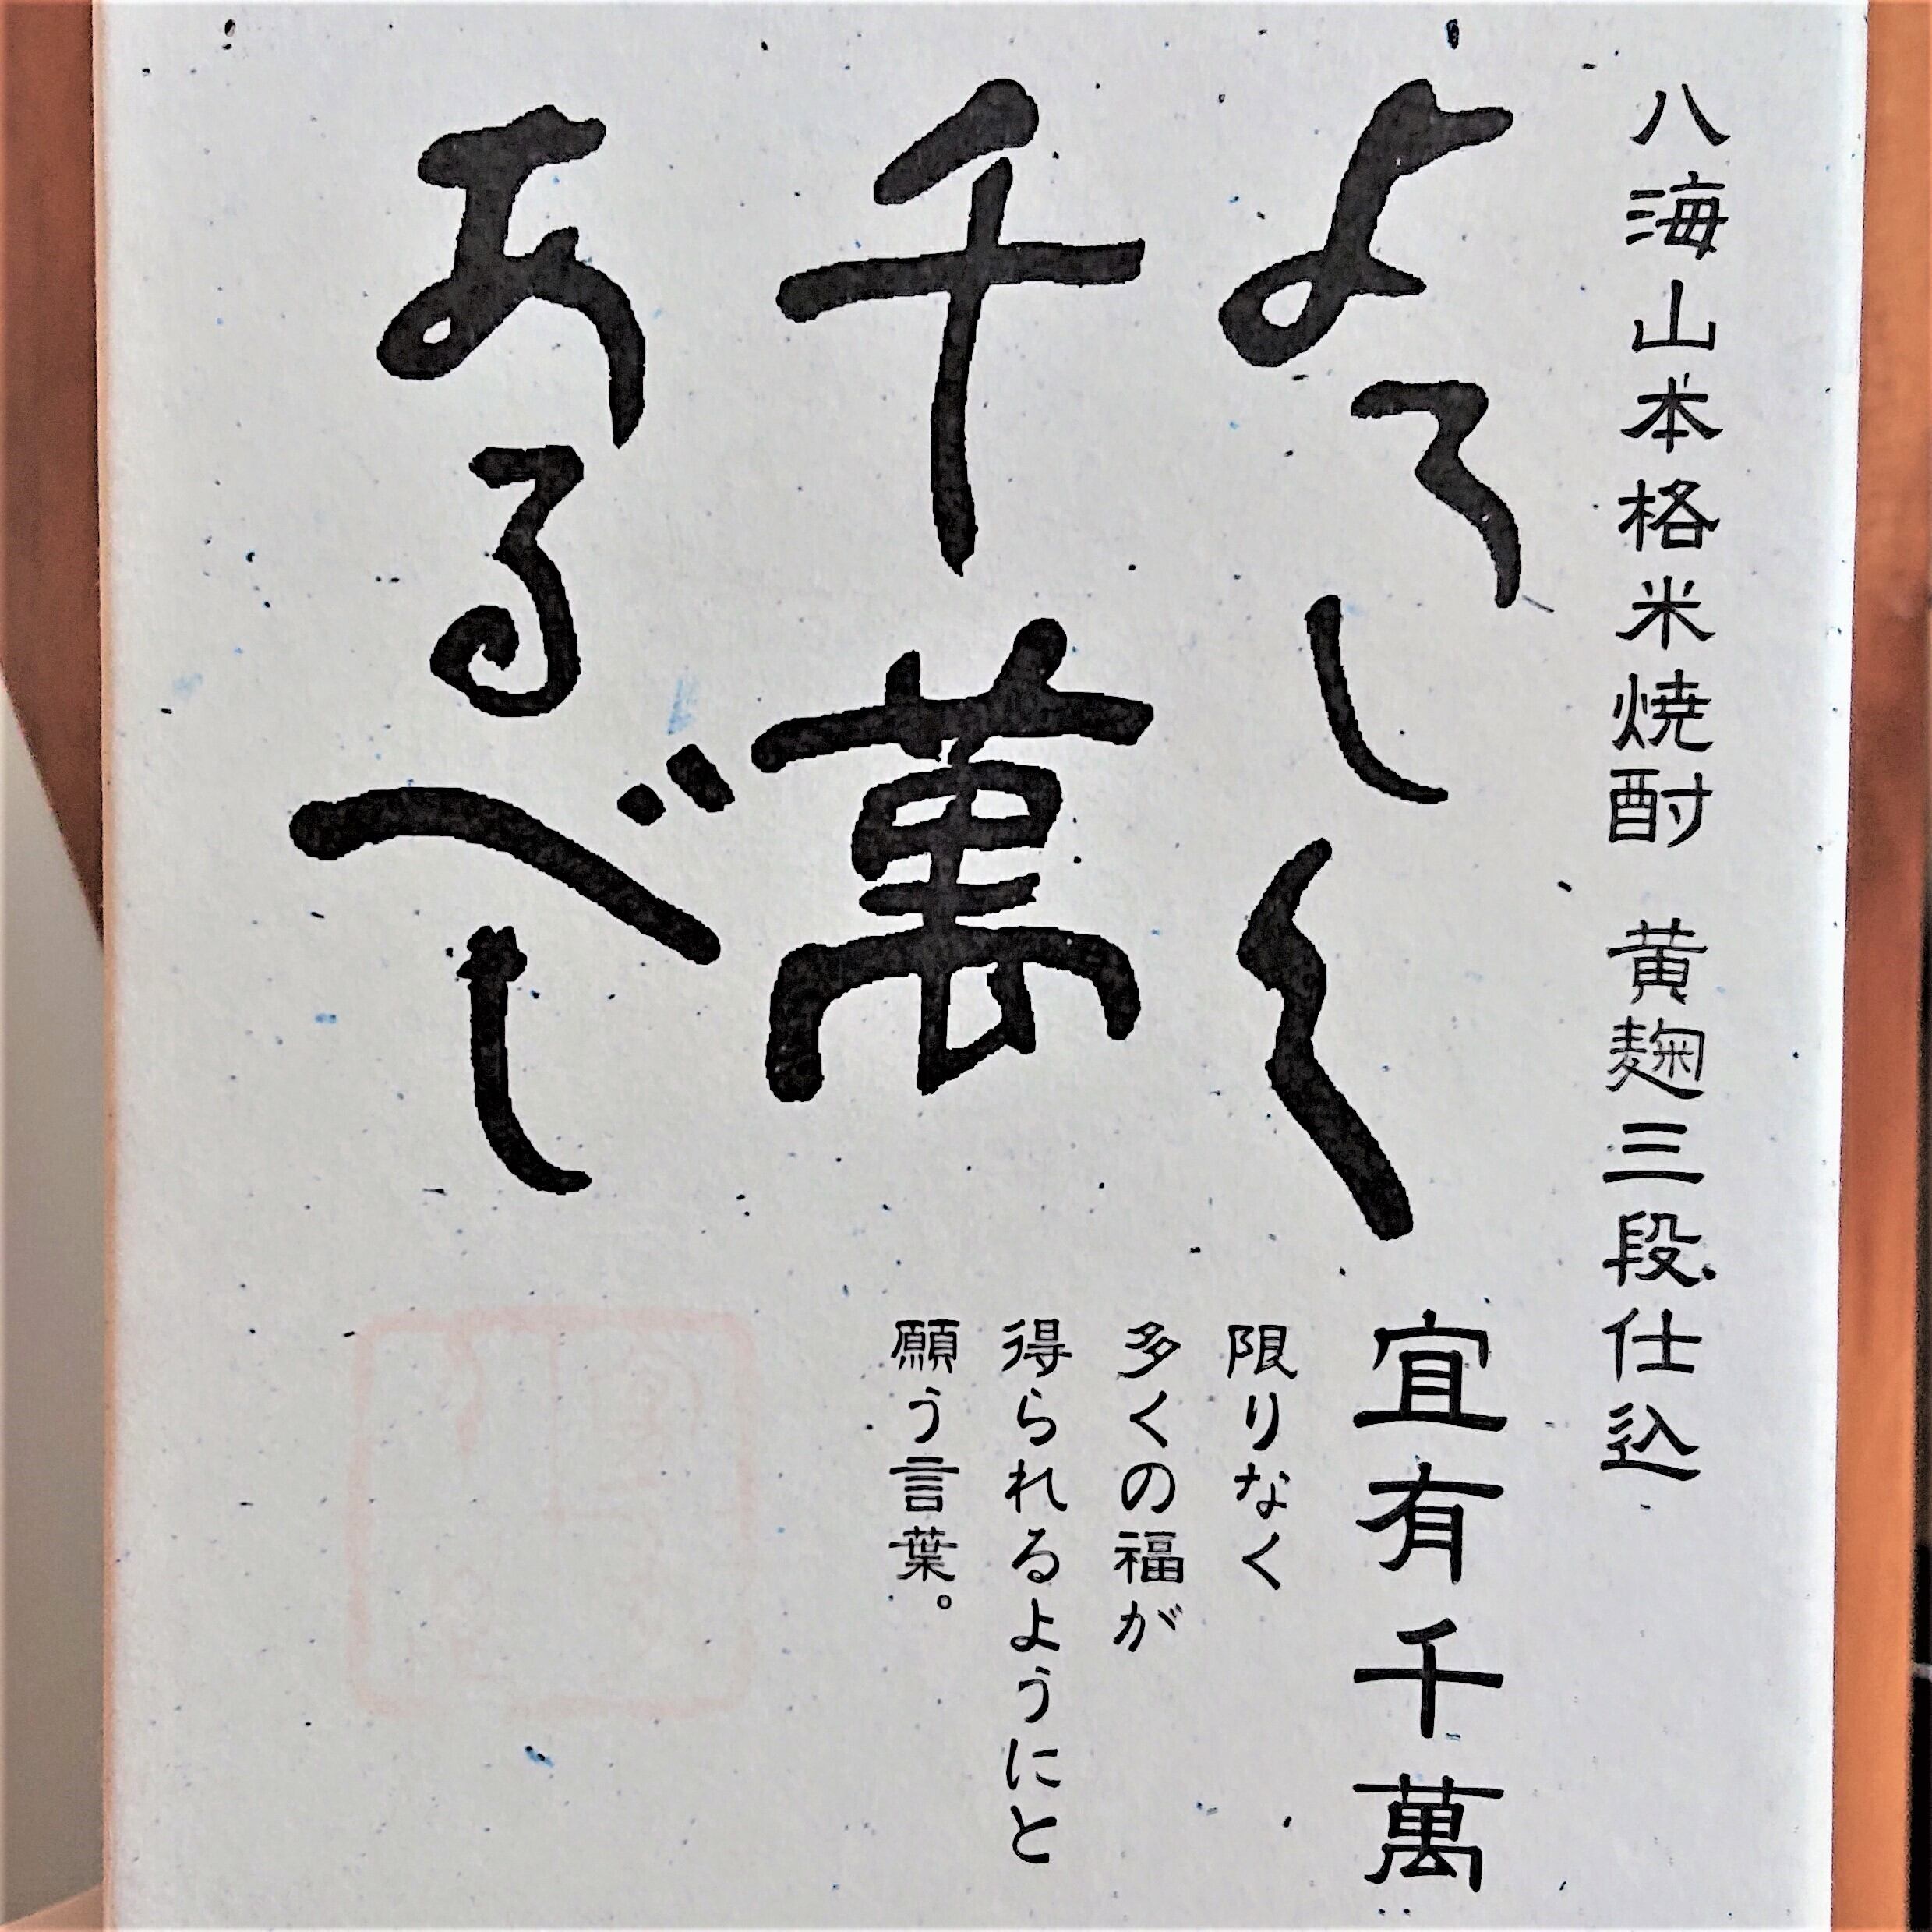 八海山本格米焼酎 黄麹三段仕込
よろしく
千萬
あるべし
宜有千萬
限りなく
多くの福が
得られるようにと
願う言葉。